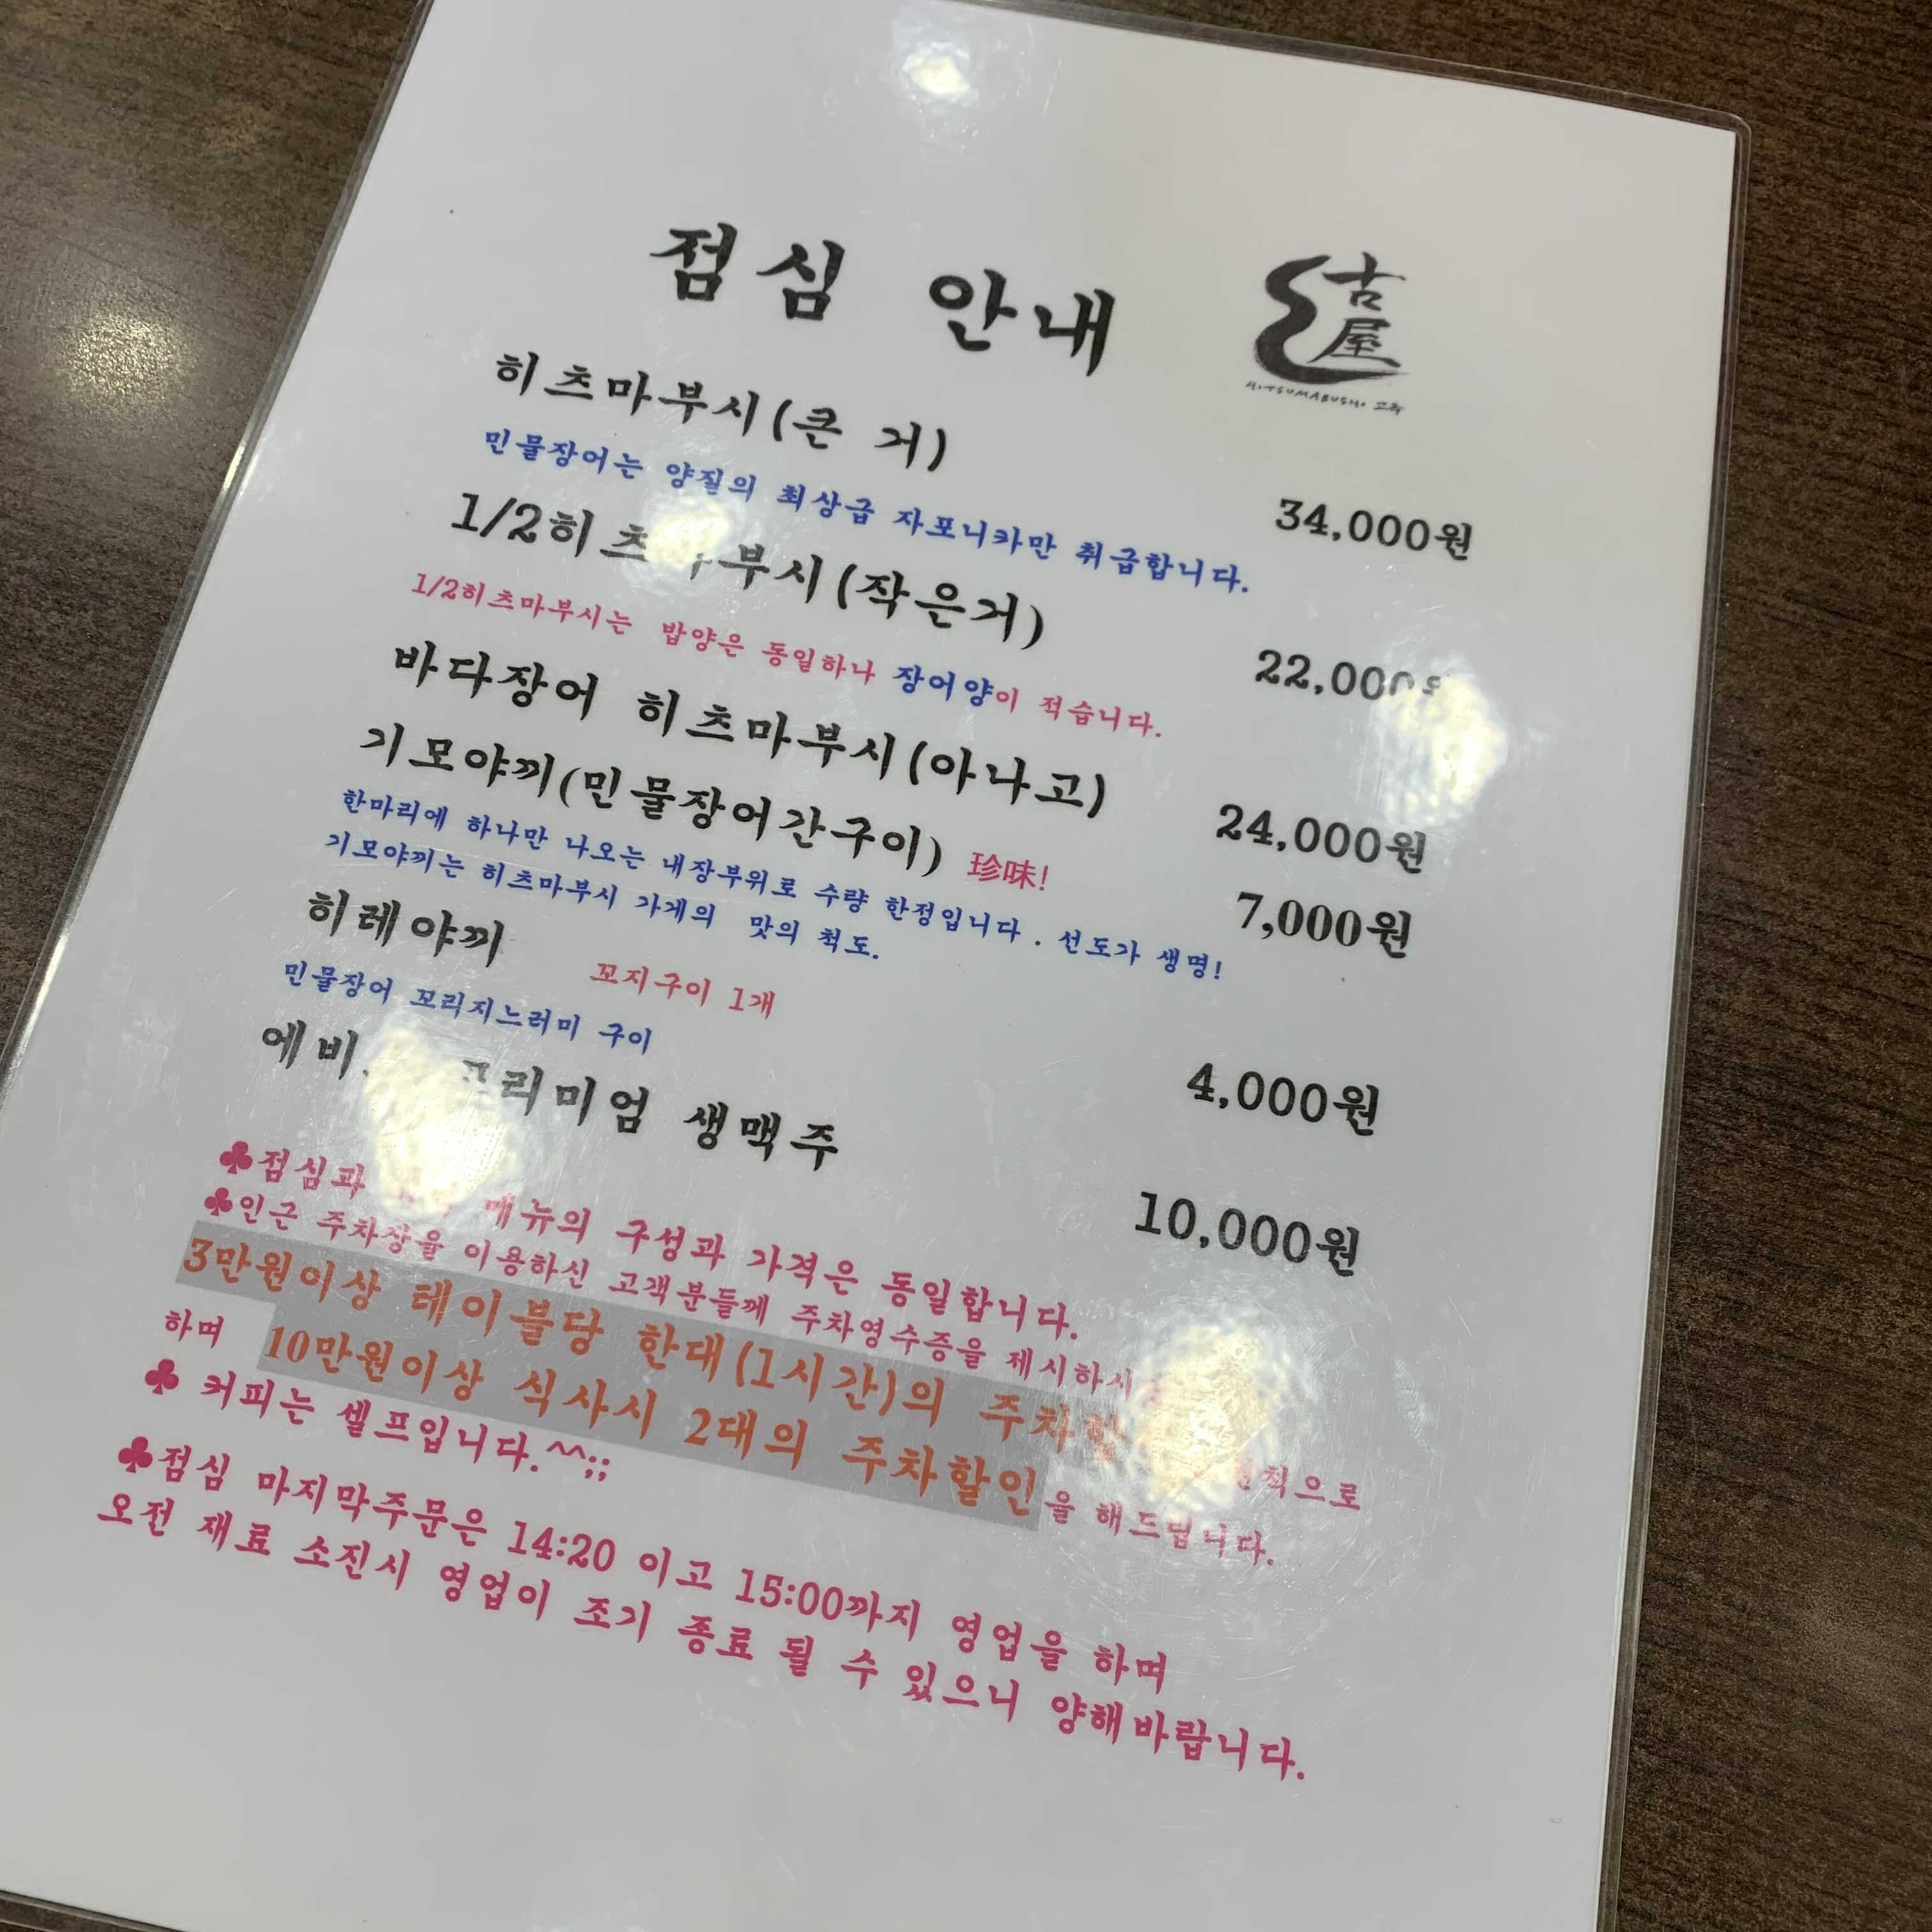 점심 안내
古屋
HITSUMABUSHI 고옥
히츠마부시(큰 거) 34,000원
민물장어는 양질의 최상급 자포니카만 취급합니다.
1/2히츠 부시(작은거) 22,000
1/2히츠마부시는 밥양은 동일하나 장어양이 적습니다.
바다장어 히츠마부시(아나고) 24,000원
기모야끼(민물장어간구이) 珍味! 7,000원
한마리에 하나만 나오는 내장부위로 수량 한정입니다. 선도가 생명!
기모야끼는 히츠마부시 가게의 맛의 척도.
히레야끼 꼬지구이 1개 4,000원
민물장어 꼬리지느러미 구이
에비 프리미엄 생맥주 10,000원
♣점심과 메뉴의 구성과 가격은 동일합니다.
♣인근 주차장을 이용하신 고객분들께 주차영수증을 제시하시
3만원이상 테이블당 한대(1시간)의 주차할 원칙으로
하며 10만원이상 식사시 2대의 주차할인을 해드립니다.
♣ 커피는 셀프입니다.^^;;
♣점심 마지막주문은 14:20 이고 15:00까지 영업을 하며
오전 재료 소진시 영업이 조기 종료 될 수 있으니 양해바랍니다.